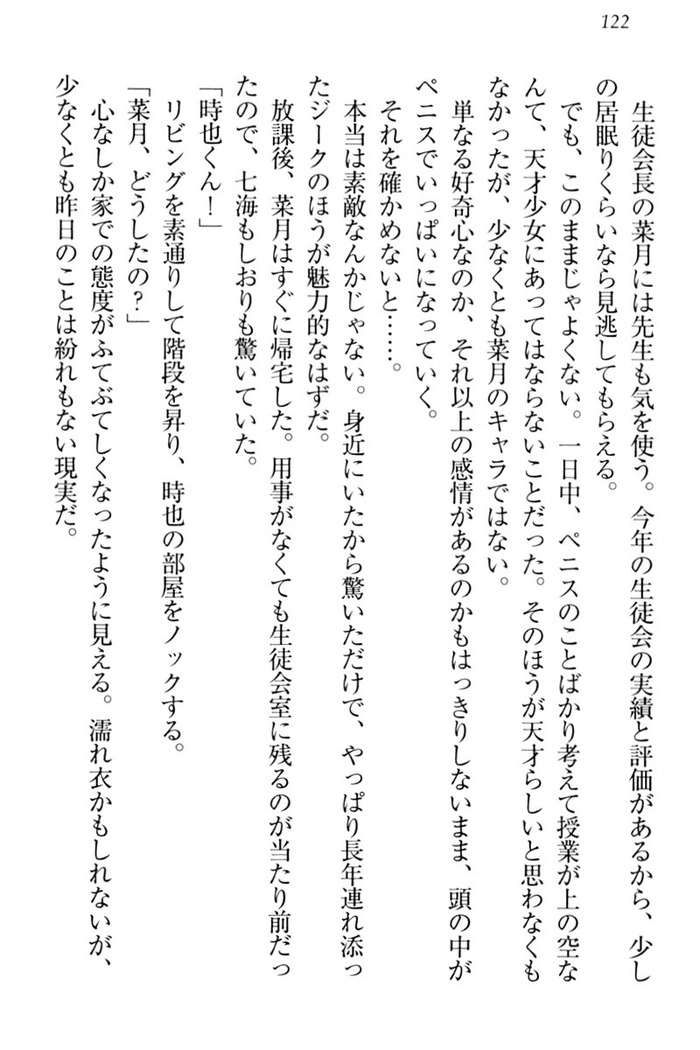 122
生徒会長の菜月には先生も気を使う。今年の生徒会の実績と評価があるから、少し
の居眠りくらいなら見逃してもらえる。
でも、このままじゃよくない。一日中、ペニスのことばかり考えて授業が上の空な
んて、天才少女にあってはならないことだった。そのほうが天才らしいと思わなくも
なかったが、少なくとも菜月のキャラではない。
単なる好奇心なのか、それ以上の感情があるのかもはっきりしないまま、頭の中が
ペニスでいっぱいになっていく。
それを確かめないと……。
本当は素敵なんかじゃない。身近にいたから驚いただけで、やっぱり長年連れ添っ
たジークのほうが魅力的なはずだ。
放課後、菜月はすぐに帰宅した。用事がなくても生徒会室に残るのが当たり前だっ
たので、七海もしおりも驚いていた。
「時也くん！」
リビングを素通りして階段を昇り、時也の部屋をノックする。
「菜月、どうしたの？」
心なしか家での態度がふてぶてしくなったように見える。濡れ衣かもしれないが、
少なくとも昨日のことは紛れもない現実だ。